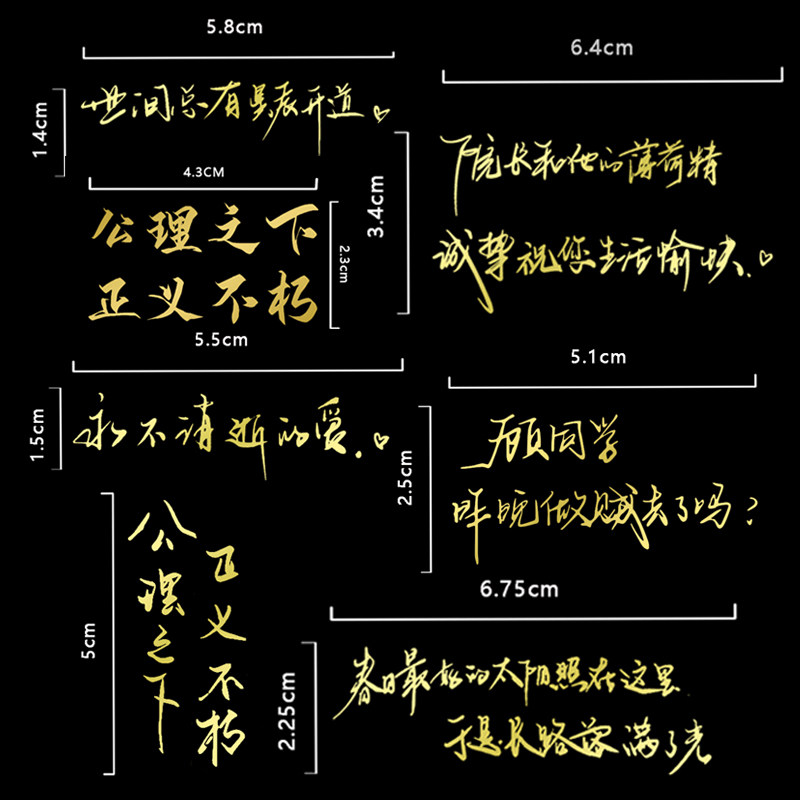 5.8cm
1.4cm
世间总有星辰开道。♡
4.3CM
公理之下
正义不朽
2.3cm
6.4cm
3.4cm
院长和他的薄荷精
诚挚祝您生活愉快.♡
5.5cm
1.5cm
永不消逝的爱.♡
5.1cm
2.5cm
顾同学
昨晚做贼去了吗?
5cm
公理之下
正义不朽
6.75cm
2.25cm
春日最好的太阳照在这里
于是长路落满了光